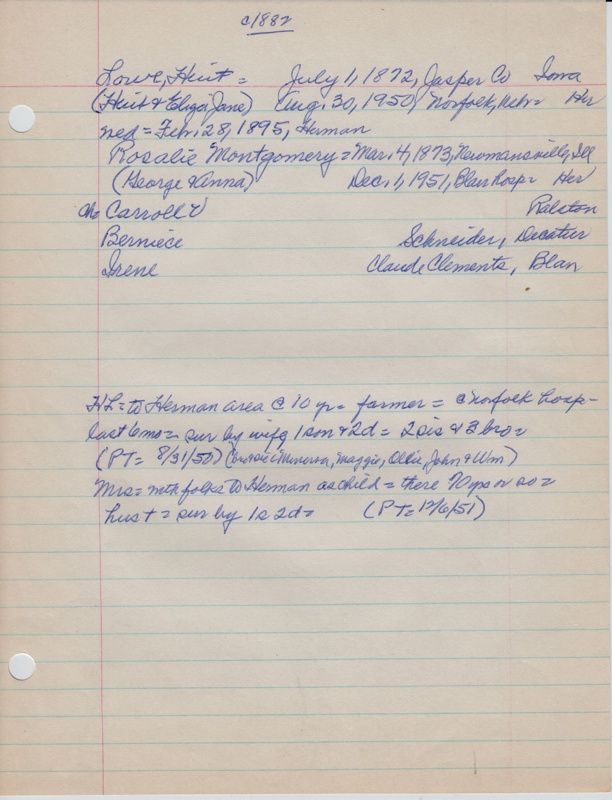 c/1882
Lowe, Hiut = July 1, 1872, Jasper Co Iowa
(Hiut & Eliza Jane) Aug. 30, 1950, Norfolk, Nebr = Her
med = Feb. 28, 1895, Herman
Rosalie Montgomery = Mar. 4, 1873, Newmansville, Ill
(George & Anna) Dec. 1, 1951, Blair Hosp = Her
Ch = Carroll V Ralston
Berniece Schneider, Decatur
Irene Claude Clements, Blair
HL = to Herman area @ 10 yr = farmer = @ Norfolk hosp-
last 6 mo = sur by wife, 1 son & 2 d = 2 sis & 3 bro =
(PT = 8/31/50) Minerva, Maggie, Ollie, John & Wm)
Mrs = with folks to Herman as child = there 70 yrs or so =
hust = sur by 1 s 2d = (PT = 12/6/51)